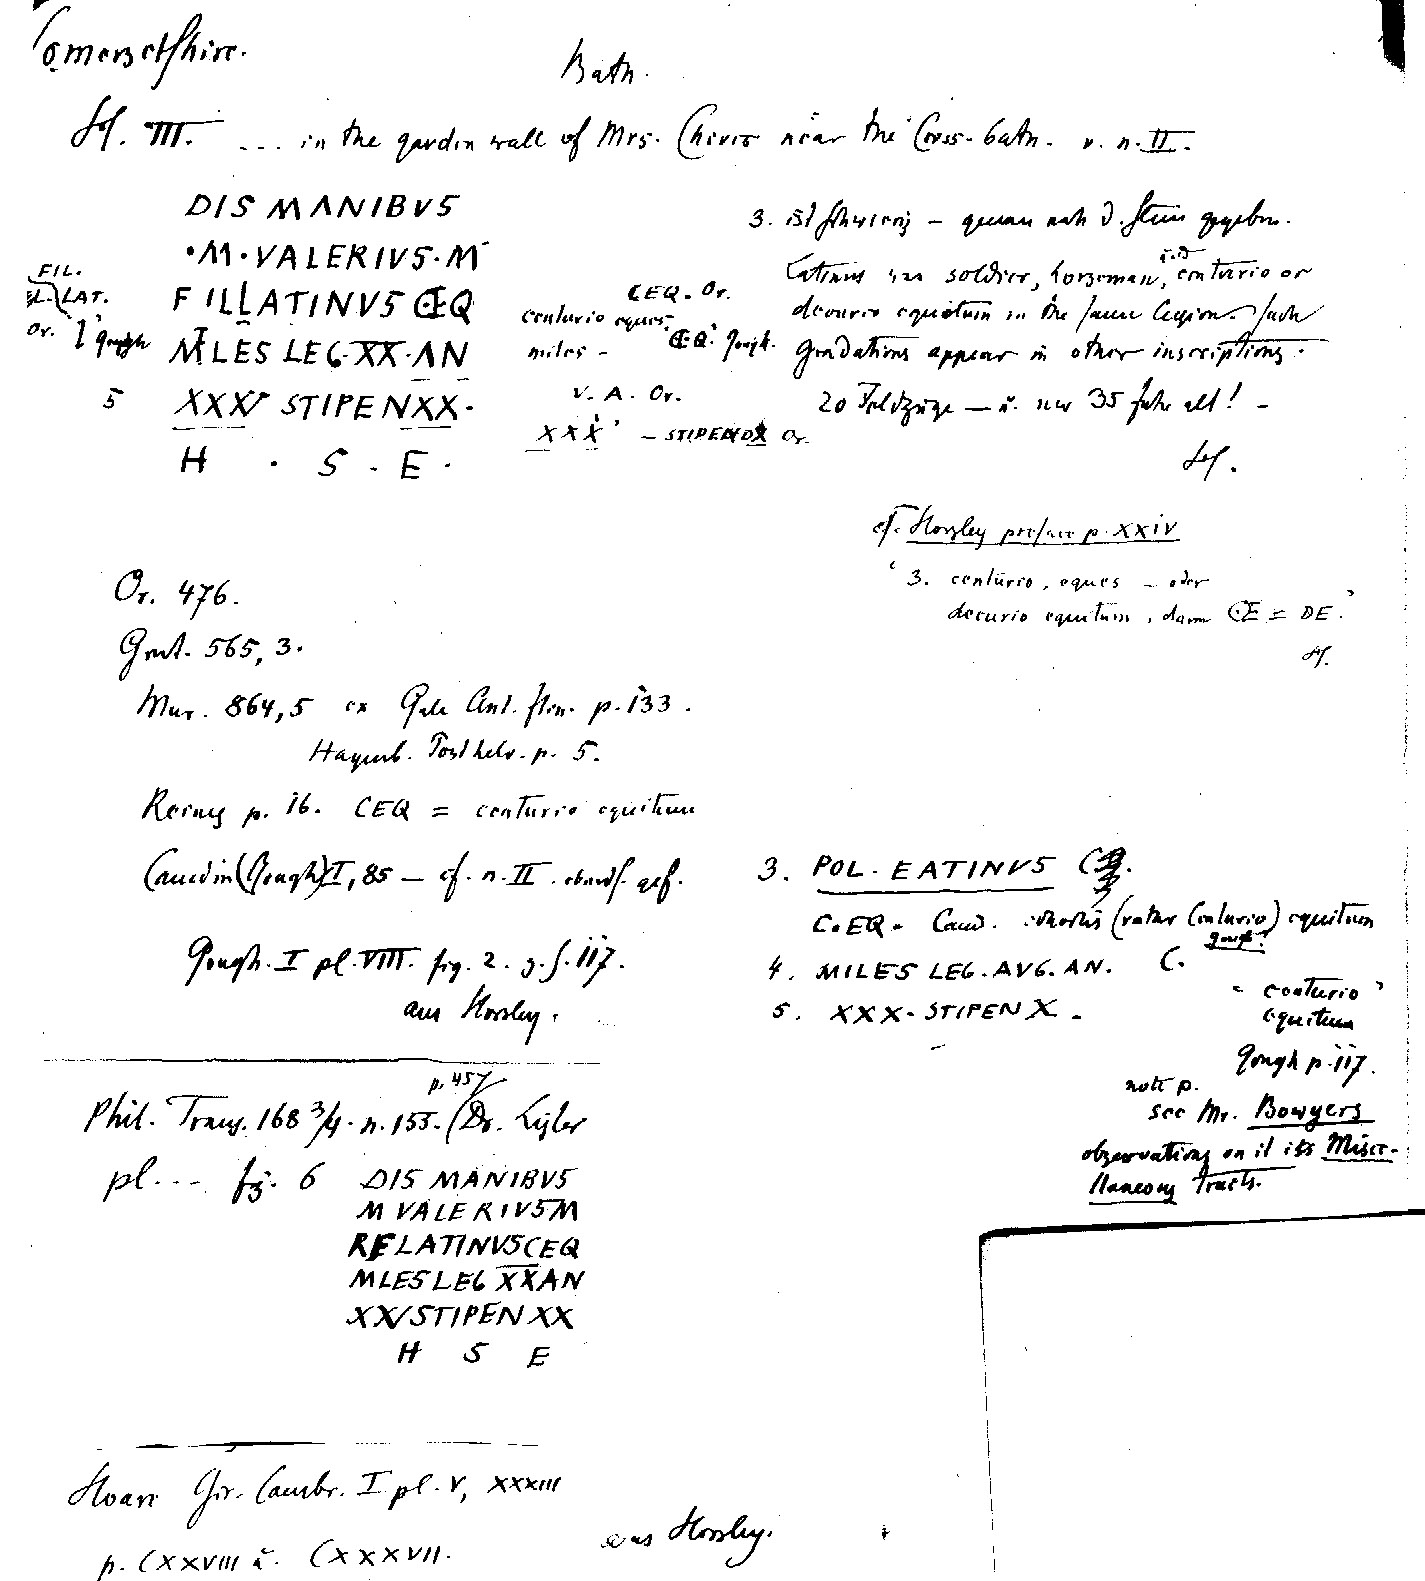 Somersetshire.
Bath.
Hf. III. ... in the garden wall of Mrs. Chivers near the Cross-bath. v. n. II.
DIS MANIBVS
·M·VALERIVS·M·
FIL LATINVS C EQ
MILES LEG·XX·AN
5 XXXV STIPEN XX·
H · S · E ·
FIL.
LAT.
Or. Gough
CEQ. Or.
centurio eques
miles -
CEQ. Gough.
V. A. Or.
XXX - STIPEND X Or.
3. ist schwierig - genau nach d. Stein gegeben.
Latinus was soldier, horseman, and centurio or
decurio equitum in the same legion. Such
gradations appear in other inscriptions.
20 Feldzüge - u. nur 35 Jahr alt! -
Hf.
cf. Horsley preface p. XXIV
3. centurio, eques - oder
decurio equitum, dann CE = DE.
Hf.
Or. 476.
Grut. 565, 3.
Mur. 864,5 ex Gale Ant. Itin. p. 133.
Hagenb. p. 5.
Reines p. 16. CEQ = centurio equitum
Camden (Gough) I, 85 - cf. n. II.
Gough. I pl. VIII. fig. 2. z. S. 117.
aus Horsley.
3. POL. EATINVS C
C.EQ. Camd. cohortis (rather Centurio) equitum
Gough.
4. MILES LEG. AVG. AN. C.
5. XXX. STIPEN X.
centurio
equitum
Gough p. 117.
note p.
see Mr. Bowyers
observations on it in his Misce-
llaneous Tracts.
Phil. Trans. 168 3/4. n. 155. p. 457 (Dr. Lister
pl... fig. 6 DIS MANIBVS
M VALERIVS M
RELATINVS CEQ
MLES LEG XX AN
XXV STIPEN XX
H S E
Hoare Gir. Cambr. I pl. V, XXXIII
p. CXXVIII u. CXXXVII.
aus Horsley.